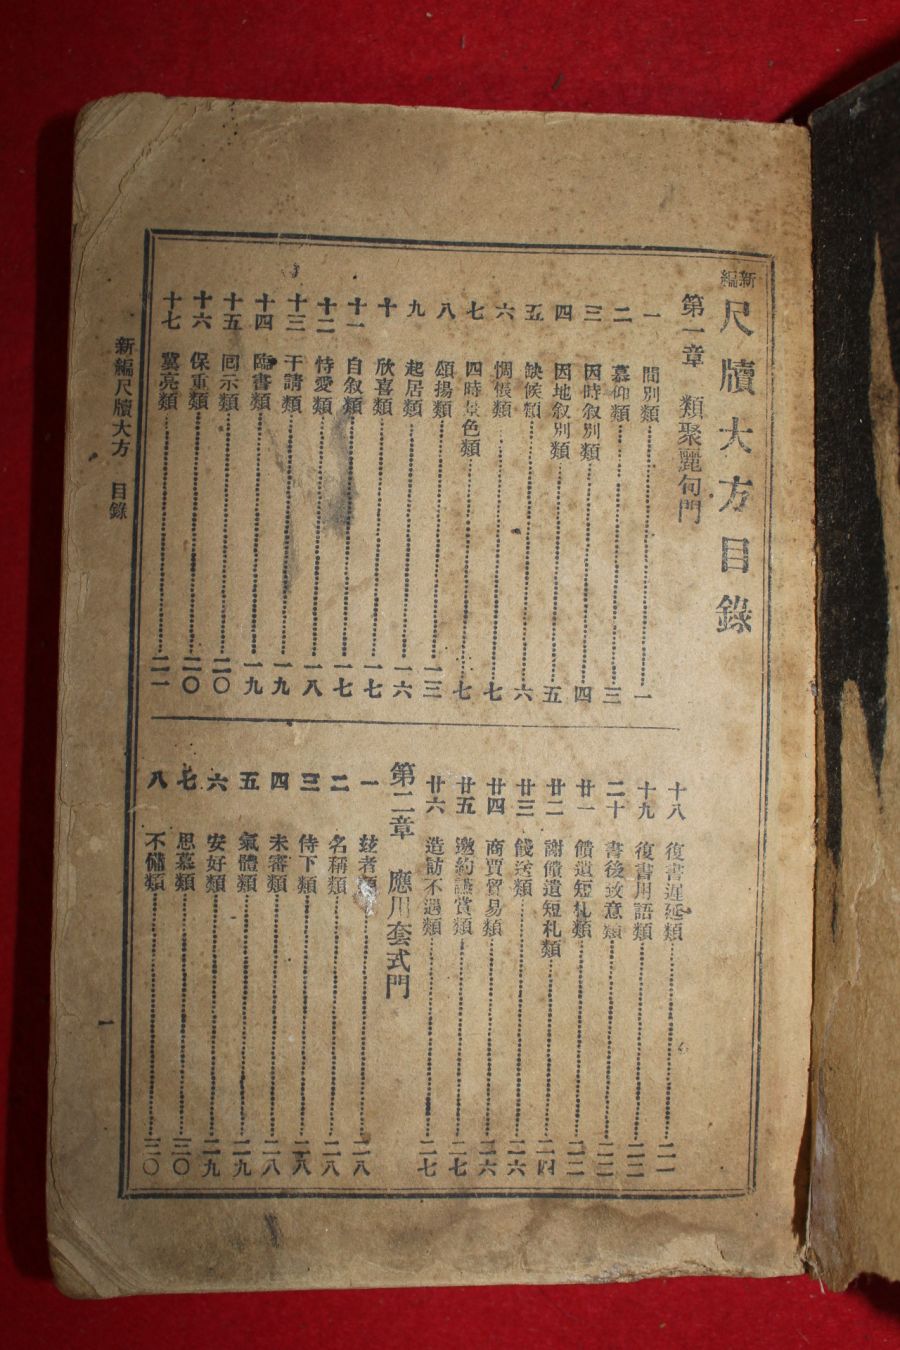 新編 尺牘大方目錄
第一章 類聚麗句門
一 間別類 一
二 慕仰類 三
三 因時叙別類 四
四 因地叙別類 五
五 缺候類 六
六 惆悵類 七
七 四時景色類 七
八 頌揚類 一三
九 起居類 一六
十 欣喜類 一七
十一 自叙類 一七
十二 恃愛類 一八
十三 干請類 一九
十四 臨書類 一九
十五 回示類 二〇
十六 保重類 二〇
十七 冀亮類 二一
十八 復書遲延類 二一
十九 復書用語類 二二
二十 書後致意類 二二
廿一 饋遺短札類 二三
廿二 謝饋遺短札類 二四
廿三 餞送類 二六
廿四 商賈貿易類 二六
廿五 邀約讌賞類 二七
廿六 造訪不遇類 二七
第二章 應川套式門
一 玆者類 二八
二 名稱類 二八
三 侍下類 二八
四 未審類 二八
五 氣體類 二九
六 安好類 二九
七 思慕類 三〇
八 不備類 三〇
新編尺牘大方 目錄
一